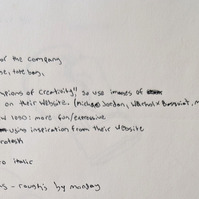 of the company
se, tote bag,
mpions of creativity", so use images of
on their website. (Michael Jordan, Warhol x Basquiat, m
w logo: more fun/expressive
using inspiration from their website
o italic
s - roughs by monday